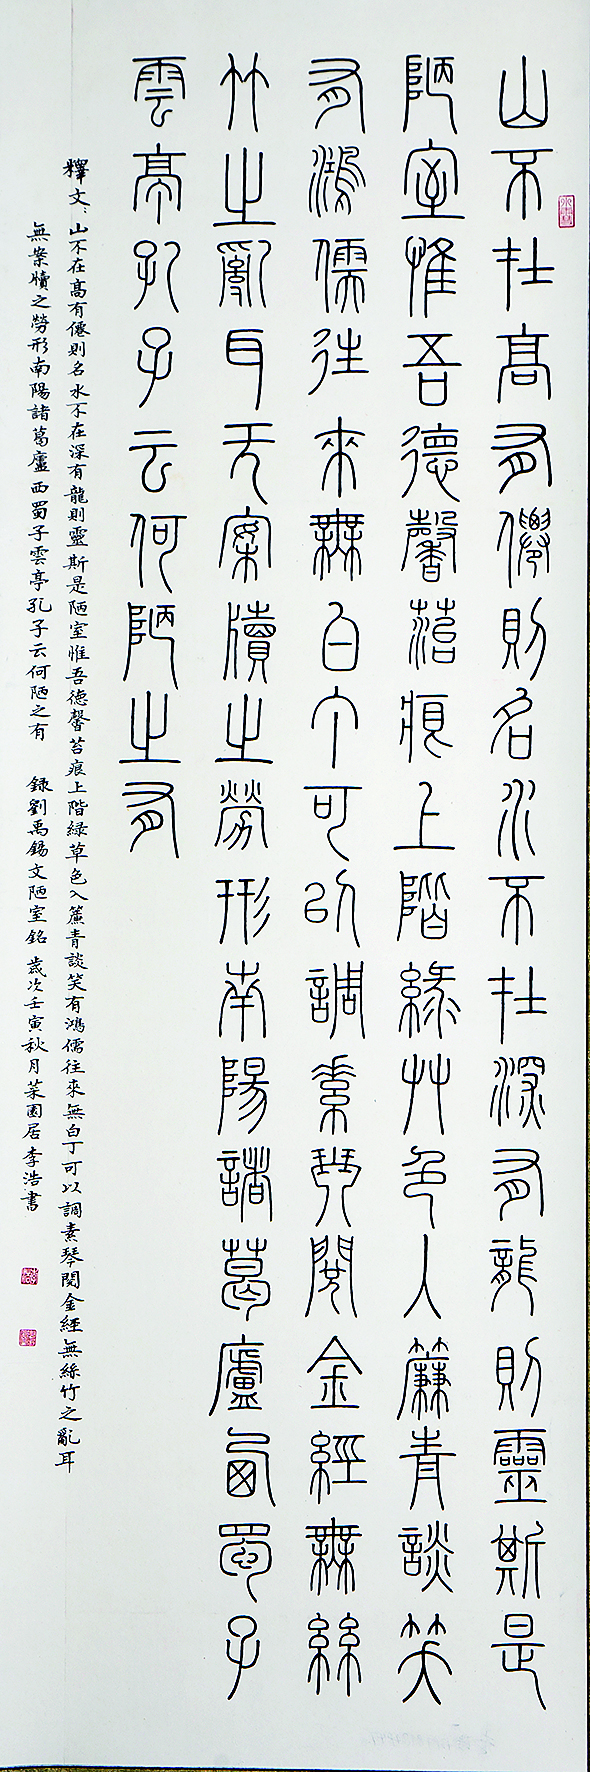 山不在高有僊則名水不在深有龍則靈斯是
陋室惟吾德馨菭痕上階綠艸色入簾青談笑
有鴻儒往來無白丁可以調素琴閱金經無絲
竹之亂耳无案牘之勞形南陽諸葛廬西蜀子
雲亭孔子云何陋之有
釋文：山不在高有僊則名水不在深有龍則靈斯是陋室惟吾德馨苔痕上階綠草色入簾青談笑有鴻儒往來無白丁可以調素琴閱金經無絲竹之亂耳
無案牘之勞形南陽諸葛廬西蜀子雲亭孔子云何陋之有 録劉禹錫文陋室銘 歲次壬寅秋月菜園居李浩書